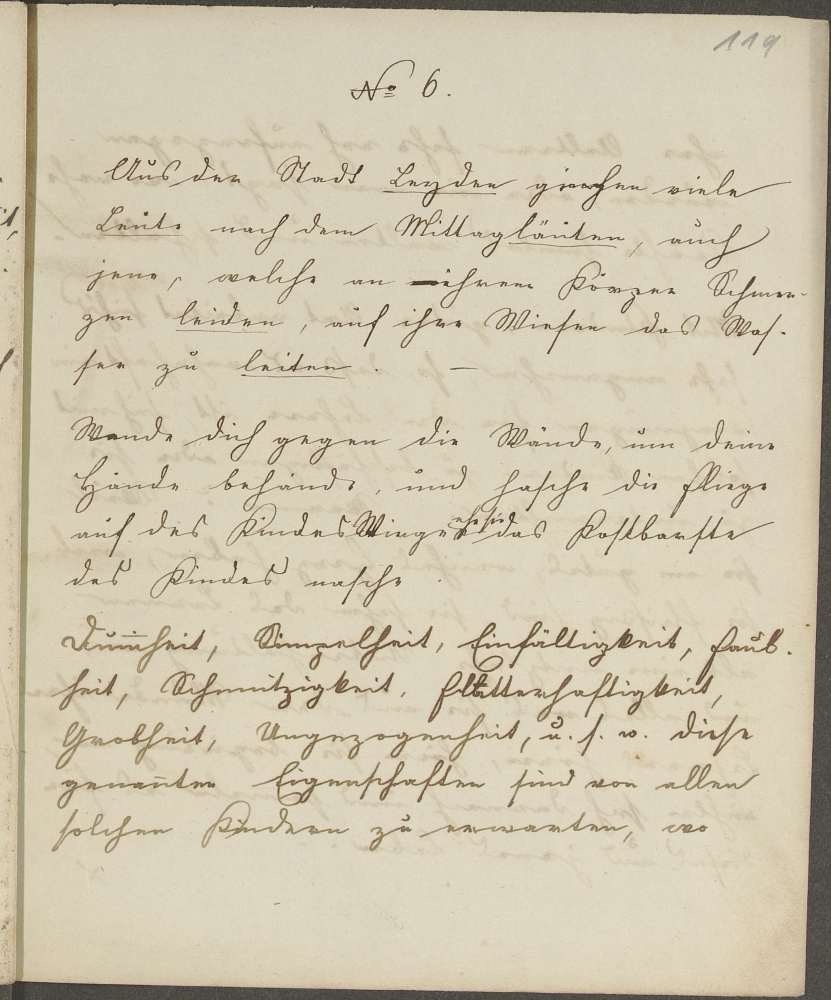 119
No 6.
Aus der Stadt Leyden gingen viele
Leute nach dem Mittagläuten, auch
jene, welche an ihrem Körper Schmer-
zen leiden, auf ihre Wiesen das Was-
ser zu leiten. —
Wende dich gegen die Wände, um deine
Hände behände, und hasche die Fliege
auf des Kindes Wiege ehe sie das Kostbarste
des Kindes nasche.
Dum̄heit, Simpelheit, Einfältigkeit, Faul-
heit, Schmutzigkeit, Flatterhaftigkeit,
Grobheit, Ungezogenheit, u. s. w. diese
genan̄ten Eigenschaften sind von allen
solchen Kindern zu erwarten, wo